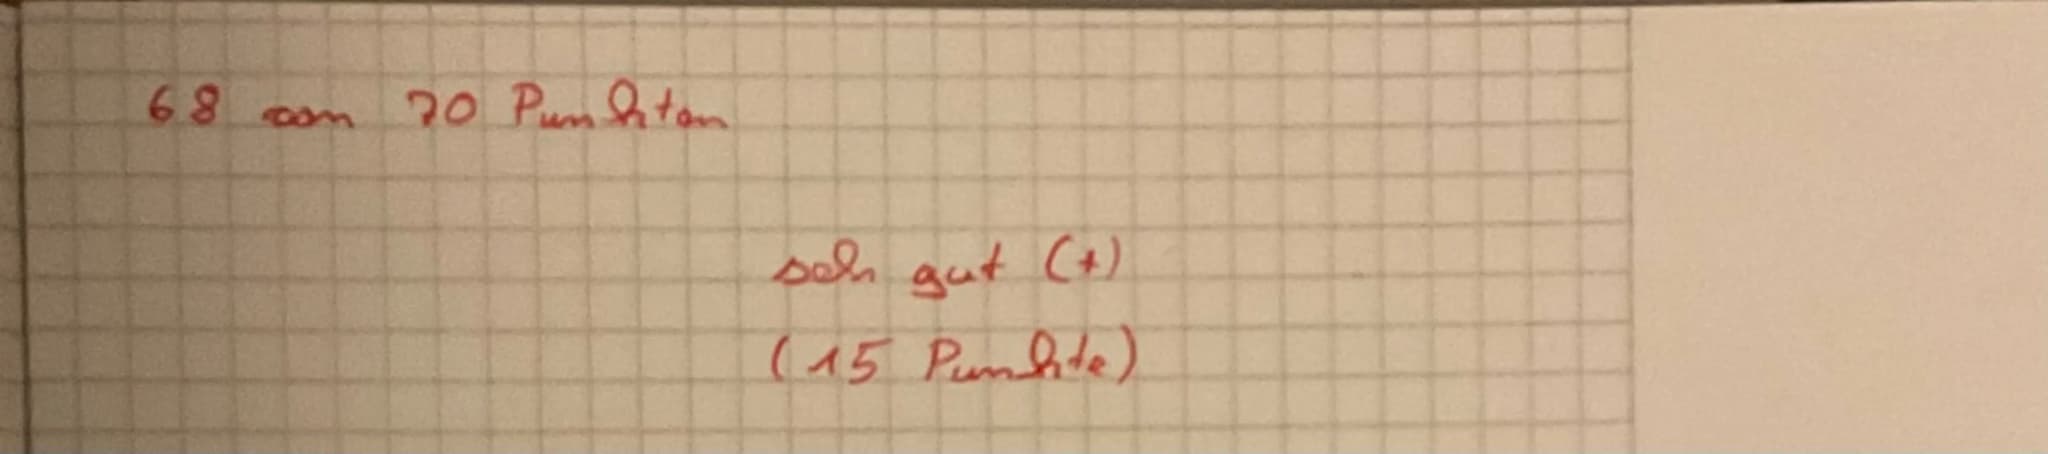 68 von 70 Punkten
sehr gut (+)
(15 Punkte)